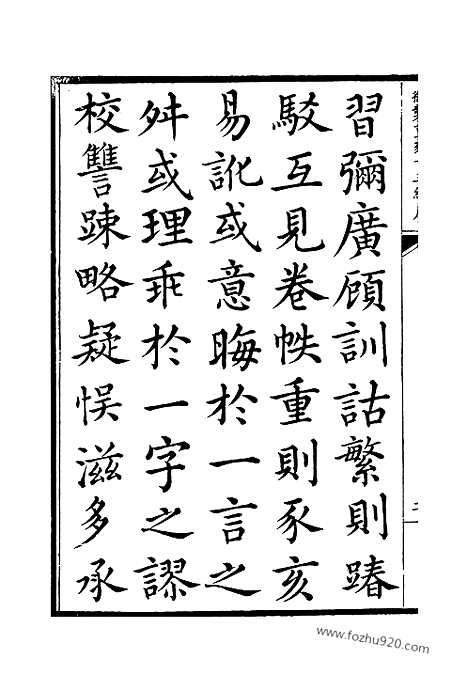 習彌廣顧訓詁繁則踳
駁互見卷帙重則豕亥
易訛或意晦於一言之
舛或理乖於一字之謬
校讐踈略疑悞滋多承
www.fozhu920.com
www.fozhu920.com